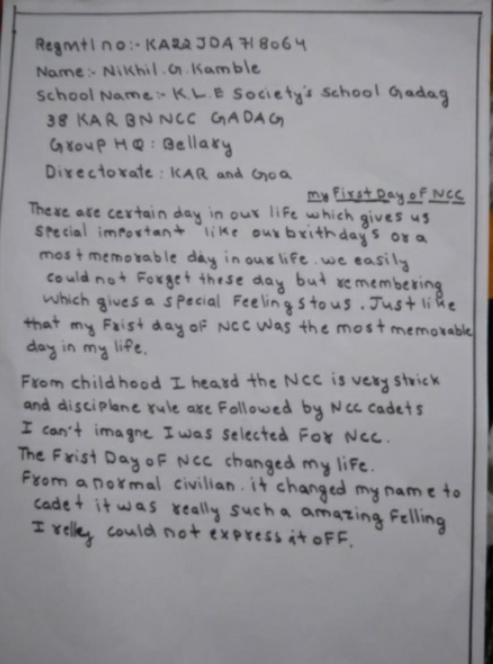 Regmtl no:- KA22JDA718064
Name:- Nikhil.G.Kamble
School Name:- K.L.E Society's School Gadag
38 KAR BN NCC GADAG
Group HQ : Bellary
Directorate : KAR and Goa
my First Day of NCC
There are certain day in our life which gives us
special important like our brithday's or a
most memorable day in our life. we easily
could not Forget these day but remembering
which gives a special Feelings to us. Just like
that my Frist day of NCC was the most memorable
day in my life.
From childhood I heard the NCC is very strick
and disciplane rule are Followed by NCC cadets
I can't imagne I was selected For NCC.
The Frist Day of NCC changed my life.
From a normal civilian. it changed my name to
cadet it was really such a amazing Felling
I relley could not express it oFF.